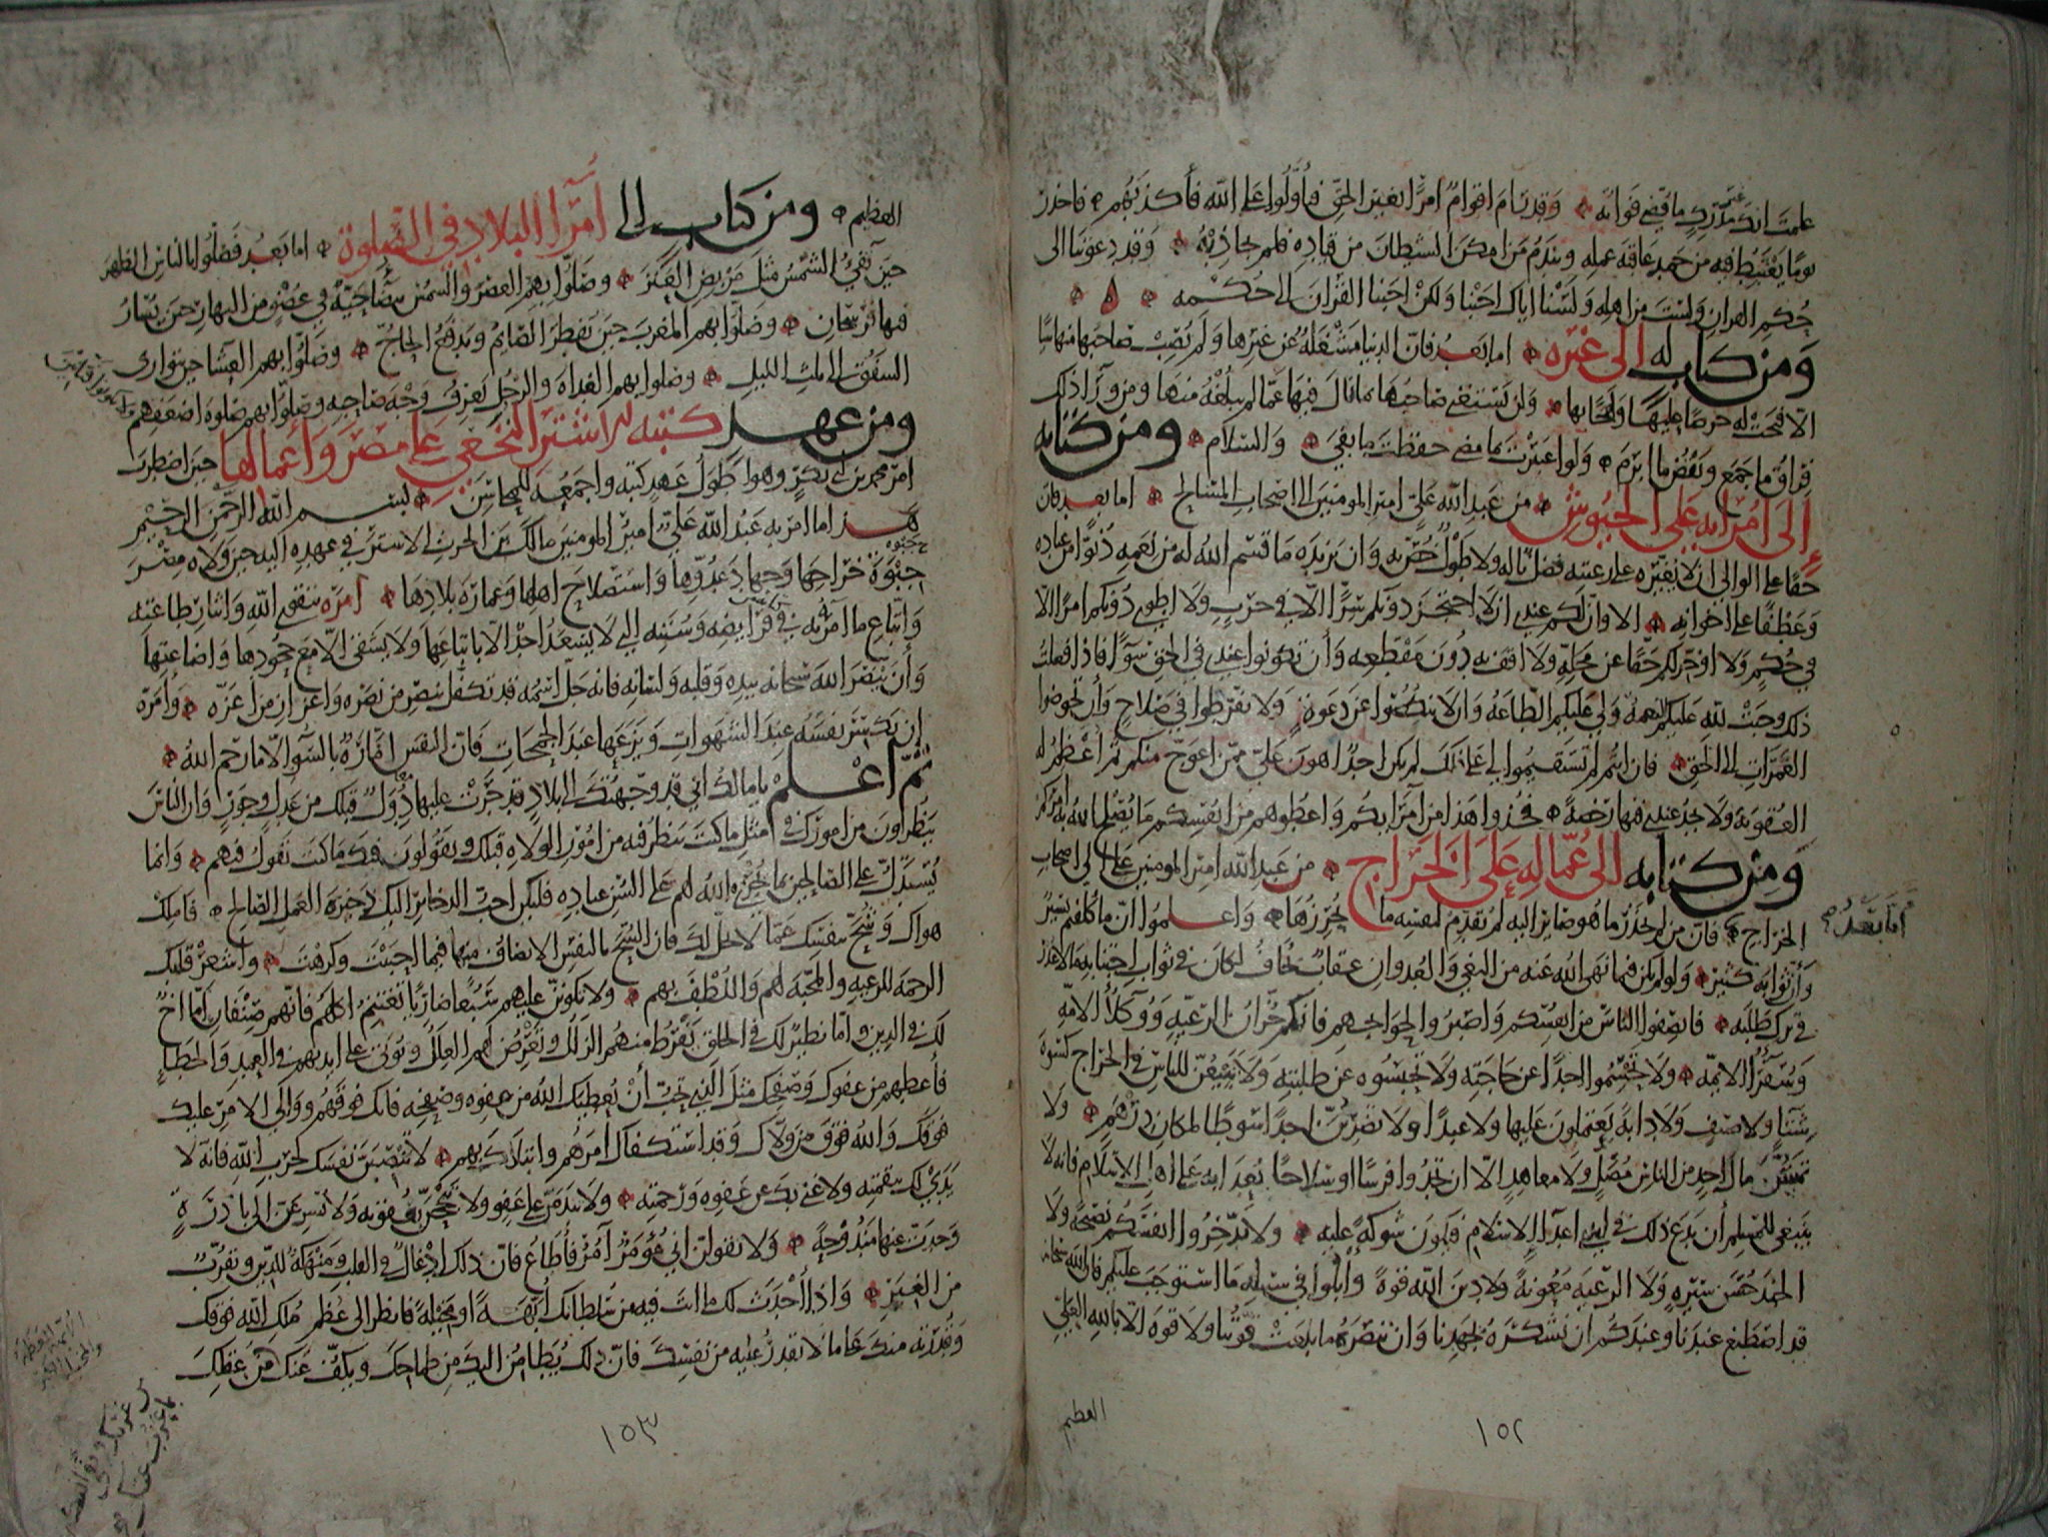 علمت انك غير مدرك ما قضى فواته وقد رام اقوام امرا بغير الحق فتأولوا على الله فأكذبهم فاحذر
يوما يغتبط فيه من حمد عاقبة عمله ويندم من امكن الشيطان من قياده فلم يجاذبه وقد دعوتنا الى
حكم القران ولست من اهله ولسنا اياك اجبنا ولكن اجبنا القران الى حكمه
ومن كتاب له الى غيره اما بعد فان الدنيا مشغلة عن غيرها ولم يصب صاحبها منها شيا
الا فتحت له حرصا عليها ولهجا بها ولن يستغني صاحبها بما نال فيها عما لم يبلغه منها ومن ورآء ذلك
فراق ما جمع ونقض ما ابرم ولو اعتبرت بما مضى حفظت ما بقي والسلام ومن كتابه
الى امرايه على الجيوش من عبد الله علي امير المومنين الى اصحاب المسالح اما بعد فان
حقا على الوالي ان لا يغيره على رعيته فضل ناله ولا طول خص به وان يزيده ما قسم الله له من نعمه دنوا من عباده
وعطفا على اخوانه الا وان لكم عندي ان لا احتجز دونكم سرا الا في حرب ولا اطوي دونكم امرا الا
في حكم ولا اوخر لكم حقا عن محله ولا اقف به دون مقطعه وأن تكونوا عندي في الحق سوآ فاذا فعلت
ذلك وجبت لله عليكم النعمة ولي عليكم الطاعة وان لا تنكصوا عن دعوة ولا تفرطوا في صلاح وأن تخوضوا
الغمرات الى الحق فان انتم لم تستقيموا لي على ذلك لم يكن احد اهون علي ممن اعوج منكم ثم أعظم له
العقوبة ولا يجد عندي فيها رخصة فخذوا هذا من امرآيكم واعطوهم من انفسكم ما يصلح الله به امركم
ومن كتابه الى عماله على الخراج من عبد الله امير المومنين علي الى اصحاب
الخراج فان من لم يحذر ما هو صاير اليه لم يقدم لنفسه ما يحرزها واعلموا ان ما كلفتم يسير
اما بعد
وأن ثوابه كثير ولو لم يكن فيما نهى الله عنه من البغي والعدوان عقاب يخاف لكان في ثواب اجتنابه ما لا عذر
في ترك طلبه فانصفوا الناس من انفسكم واصبروا لحوايجهم فانكم خزان الرعية ووكلاء الامة
وسفرآء الايمة ولا تحشموا احدا عن حاجته ولا تحبسوه عن طلبته ولا تبيعن للناس في الخراج كسوة
شتاء ولا صيف ولا دابة يعتملون عليها ولا عبدا ولا تضربن احدا سوطا لمكان درهم ولا
تمسن مال احد من الناس مصل ولا معاهد الا ان تجدوا فرسا او سلاحا يعدا به على اهل الاسلام فانه لا
ينبغي للمسلم أن يدع ذلك في ايدي اعدآ الاسلام فيكون شوكة عليه ولا تدخروا انفسكم نصيحة ولا
الجند حسن سيرة ولا الرعية معونة ولا دين الله قوة وابلوا في سبيله ما استوجب عليكم فان الله سبحانه
قد اصطنع عندنا وعندكم ان نشكره بجهدنا وان ننصره ما بلغت قوتنا ولا قوة الا بالله العلي
العظيم
١٥٢
العظيم ومن كتاب الى أمرآ البلاد في الصلوة اما بعد فصلوا بالناس الظهر
حين تفيء الشمس مثل مربض العنز وصلوا بهم العصر والشمس بيضا حية في عضو من النهار حين يسار
فيها فرسخان وصلوا بهم المغرب حين يفطر الصائم ويدفع الحاج وصلوا بهم العشا حين توارى
الشفق الى ثلث الليل وصلوا بهم الغداة والرجل يعرف وجه صاحبه وصلوا بهم صلوة اضعفهم
ولا تكونوا فتانين
ومن عهد كتبه للاشتر النخعي على مصر وأعمالها حين اضطرب
امر محمد بن أبي بكر وهو اطول عهد كتبه واجمعه للمحاسن بسم الله الرحمن الرحيم
هذا ما امر به عبد الله علي امير المومنين مالك بن الحرث الاشتر في عهده اليه حين ولاه مصر
جبوة خراجها وجهاد عدوها واستصلاح اهلها وعمارة بلادها امره بتقوى الله وايثار طاعته
واتباع ما امر به في فرايضه وسننه التي لا يسعد احد الا باتباعها ولا يشقى الا مع جحودها واضاعتها
وأن ينصر الله سبحانه بيده وقلبه ولسانه فانه جل اسمه قد تكفل بنصر من نصره واعزاز من أعزه وأمره
ان يكسر نفسه عند الشهوات ويزعها عند الجمحات فان النفس امارة بالسوء الا ما رحم الله
ثم اعلم يا مالك اني قد وجهتك الى بلاد قد جرت عليها دول قبلك من عدل وجور وان الناس
ينظرون من امورك في مثل ما كنت تنظر فيه من امور الولاة قبلك ويقولون فيك ما كنت تقول فيهم وانما
يستدل على الصالحين بما يجري الله لهم على السن عباده فليكن احب الذخاير اليك ذخيرة العمل الصالح فاملك
هواك وشح بنفسك عما لا يحل لك فان الشح بالنفس الانصاف منها فيما احببت وكرهت واشعر قلبك
الرحمة للرعية والمحبة لهم واللطف بهم ولا تكونن عليهم سبعا ضاريا تغتنم اكلهم فانهم صنفان إما اخ
لك في الدين واما نظير لك في الخلق يفرط منهم الزلل وتعرض لهم العلل ويوتى على ايديهم في العمد والخطإ
فأعطهم من عفوك وصفحك مثل الذي تحب أن يعطيك الله من عفوه وصفحه فانك فوقهم ووالي الامر عليك
فوقك والله فوق من ولاك وقد استكفاك امرهم وابتلاك بهم لا تنصبن نفسك لحرب الله فانه لا
يدي لك بنقمته ولا غنى بك عن عفوه ورحمته ولا تندمن على عفو ولا تبجحن بعقوبة ولا تسرعن الى بادرة
وجدت عنها مندوحة ولا تقولن اني مومر آمر فأطاع فان ذلك إدغال في القلب ومنهكة للدين وتقرب
من الغير واذا أحدث لك ما انت فيه من سلطانك أبهة او مخيلة فانظر الى عظم ملك الله فوقك
وقدرته منك على ما لا تقدر عليه من نفسك فان ذلك يطامن اليك من طماحك ويكف عنك من غربك
١٥٣